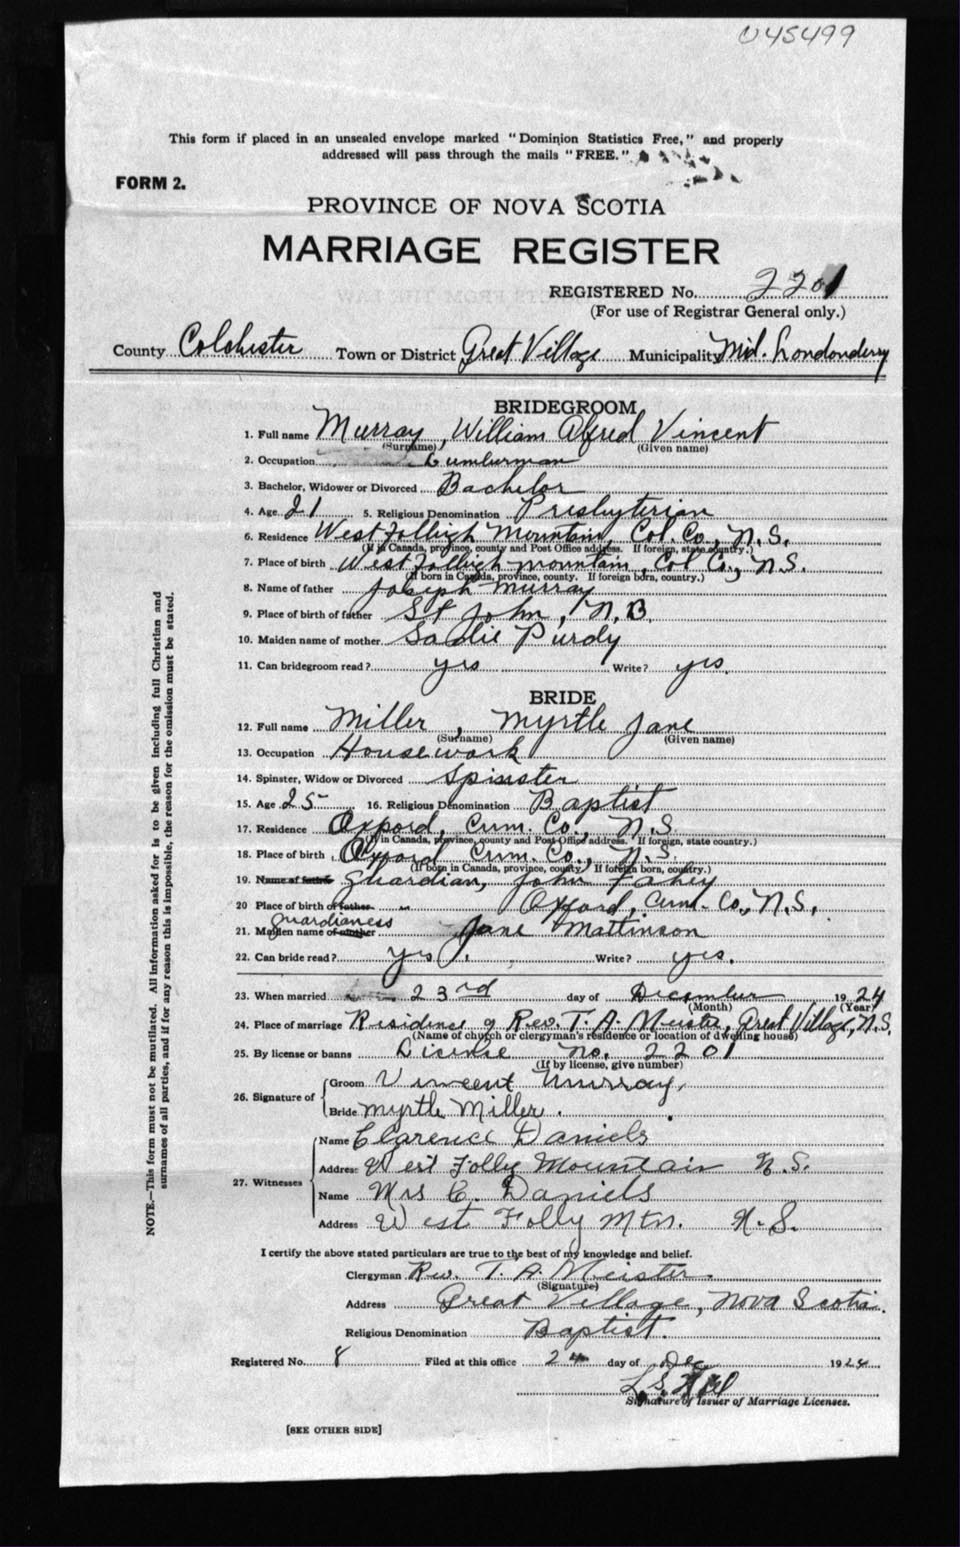 U45499
This form if placed in an unsealed envelope marked "Dominion Statistics Free," and properly
addressed will pass through the mails "FREE."
FORM 2.
PROVINCE OF NOVA SCOTIA
MARRIAGE REGISTER
REGISTERED No. 2201
(For use of Registrar General only.)
County Colchester Town or District Great Village Municipality Mid. Londonderry
BRIDEGROOM
1. Full name Murray, William Alfred Vincent
(Surname) (Given name)
2. Occupation Lumberman
3. Bachelor, Widower or Divorced Bachelor
4. Age 21 5. Religious Denomination Presbyterian
6. Residence West Folleigh Mountain, Col. Co., N.S.
(If in Canada, province, county and Post Office address. If foreign, state country.)
7. Place of birth West Folleigh mountain, Col Co., N.S.
(If born in Canada, province, county. If foreign born, country.)
8. Name of father Joseph Murray
9. Place of birth of father St John, N.B.
10. Maiden name of mother Sadie Purdy
11. Can bridegroom read? yes Write? yes.
BRIDE
12. Full name Miller, Myrtle Jane
(Surname) (Given name)
13. Occupation Housework
14. Spinster, Widow or Divorced Spinster
15. Age 25 16. Religious Denomination Baptist
17. Residence Oxford, Cum. Co., N.S.
(If in Canada, province, county and Post Office address. If foreign, state country.)
18. Place of birth Oxford Cum. Co., N.S.
(If born in Canada, province, county. If foreign born, country.)
19. Name of father Guardian, John Fahey
20 Place of birth of father " Oxford, Cum. Co., N.S.,
guardianess
21. Maiden name of mother Jane Mattinson
22. Can bride read? Yes. Write? yes.
23. When married 23rd day of December 1924
(Month) (Year)
24. Place of marriage Residence of Rev. T. A. Meister, Great Village, N.S.
(Name of church or clergyman's residence or location of dwelling house)
25. By license or banns License no. 2201
(If by license, give number)
26. Signature of
Groom Vincent Murray.
Bride Myrtle Miller.
27. Witnesses
Name Clarence Daniels
Address West Folly Mountain N.S.
Name Mrs C. Daniels
Address West Folly Mtn. N.S.
I certify the above stated particulars are true to the best of my knowledge and belief.
Clergyman Rev. T. A. Meister.
(Signature)
Address Great Village, Nova Scotia.
Religious Denomination Baptist.
Registered No. 8 Filed at this office 24 day of Dec 1924
Signature of Issuer of Marriage Licenses.
[SEE OTHER SIDE]
NOTE.—This form must not be mutilated. All information asked for is to be given including full Christian and
surnames of all parties, and if for any reason this is impossible, the reason for the omission must be stated.